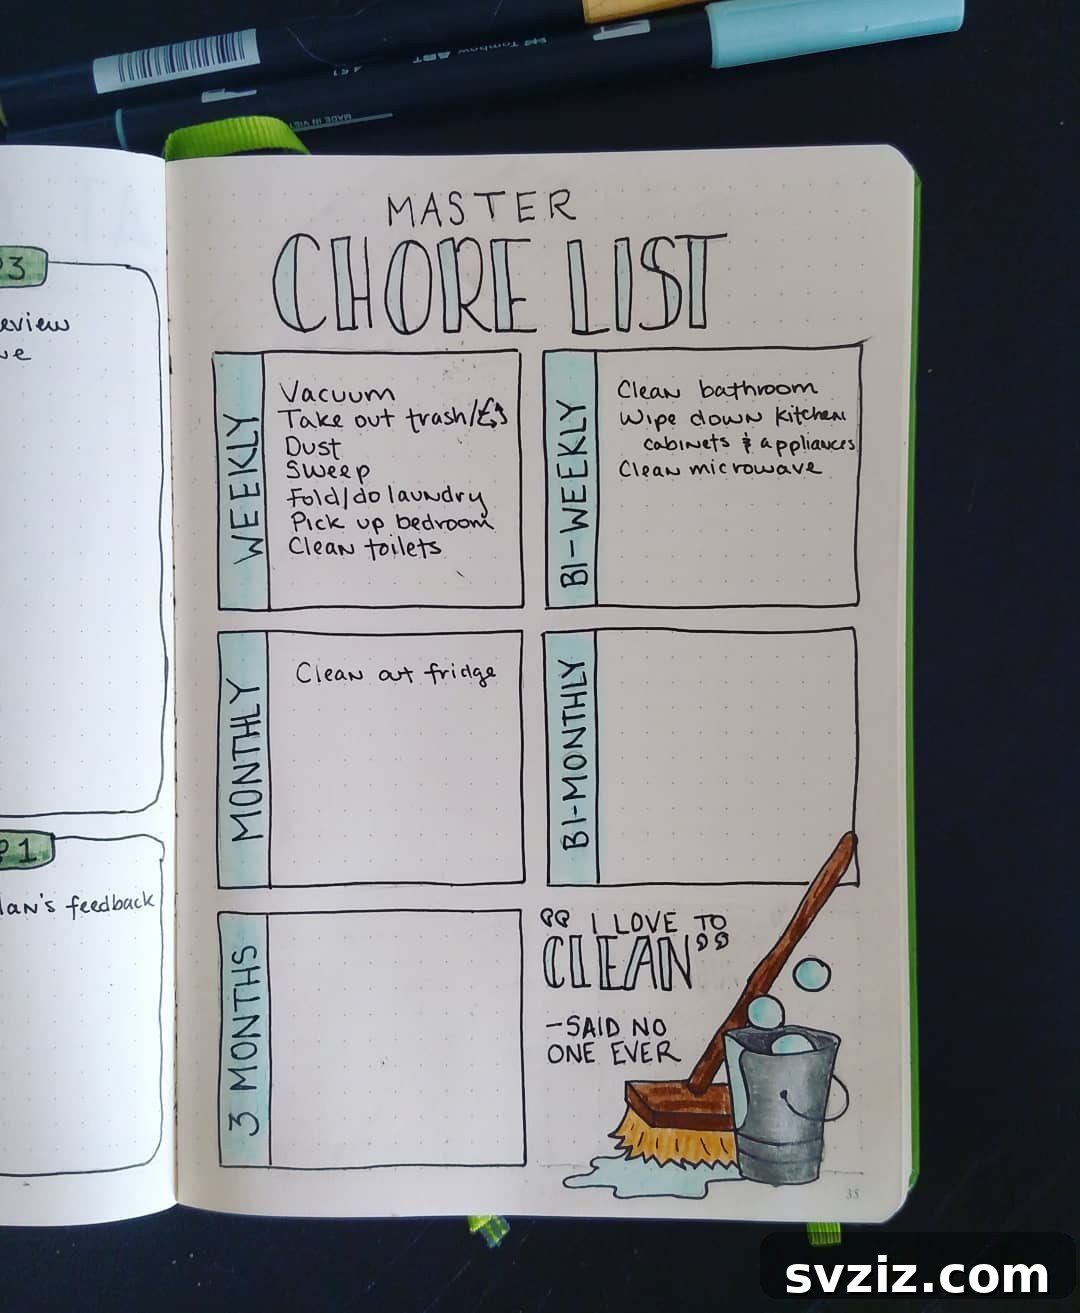 Tombow ART
451
MADE IN VIET
P3
eview
ve
P1
lan's feedback
MASTER
CHORE LIST
WEEKLY
Vacuum
Take out trash/
Dust
Sweep
Fold/do laundry
Pick up bedroom
Clean toilets
BI-WEEKLY
Clean bathroom
Wipe down kitchen
cabinets & appliances
Clean microwave
MONTHLY
Clean out fridge
BI-MONTHLY
3 MONTHS
"I LOVE TO
CLEAN"
-SAID NO
ONE EVER
35
svziz.com